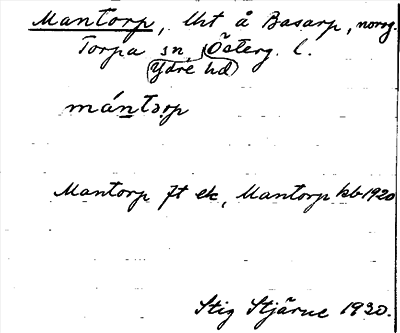 Mantorp, lht å Basarp, norog.
Torpa sn, Österg. l.
Ydre hd
mántorp
Mantorp ft ek, Mantorp kb 1920
Stig Stjärne 1930.